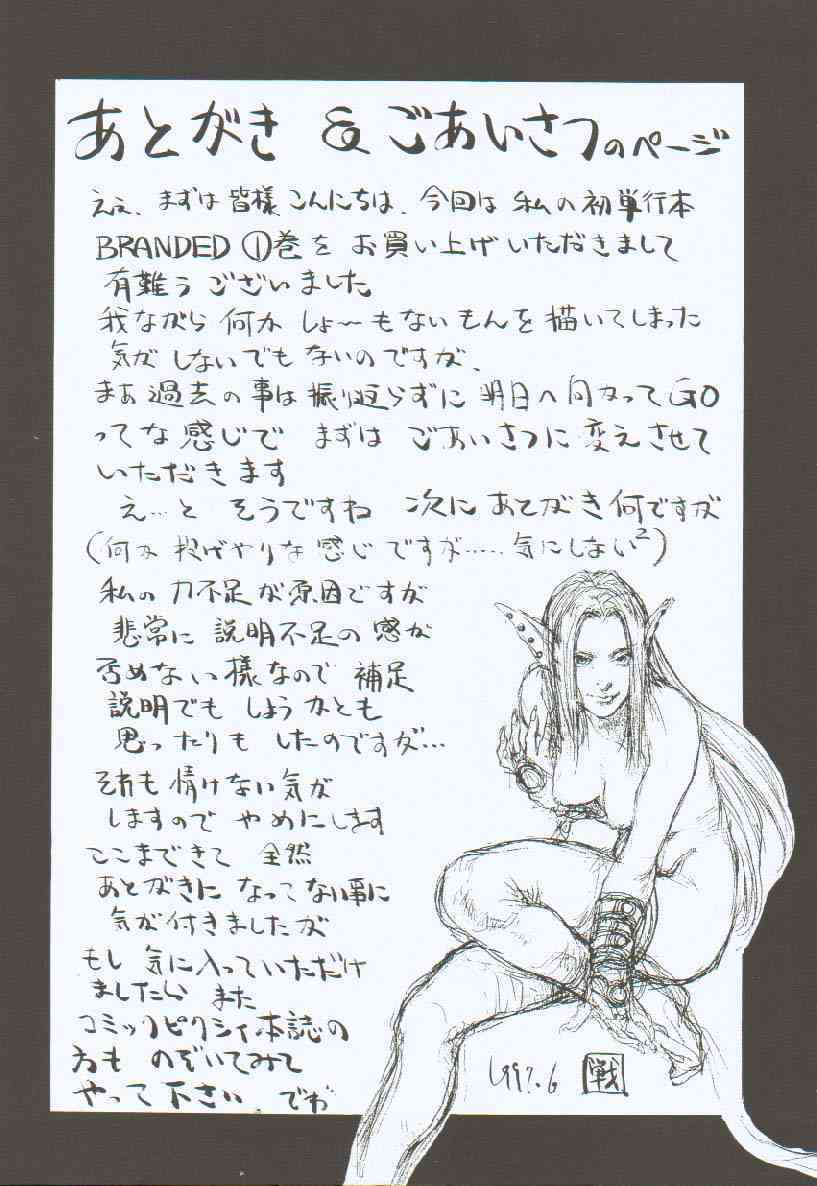 あとがき & ごあいさつのページ
ええ、まずは皆様こんにちは、今回は私の初単行本
BRANDED ①巻をお買い上げいただきまして
有難うございました
我ながら何かしょ〜もないもんを描いてしまった
気がしないでもないのですが、
まあ過去の事は振り返らずに明日へ向かってGO
ってな感じでまずはごあいさつに変えさせて
いただきます
え…とそうですね 次にあとがき何ですが
(何か投げやりな感じですが……気にしない²)
私の力不足が原因ですが
非常に説明不足の感が
否めない様なので補足
説明でもしようかとも
思ったりもしたのですが…
それも情けない気が
しますのでやめにします
ここまできて全然
あとがきになってない事に
気が付きましたが
もし気に入っていただけ
ましたら また
コミックピクシィ本誌の
方ものぞいてみて
やって下さい でわ
戦